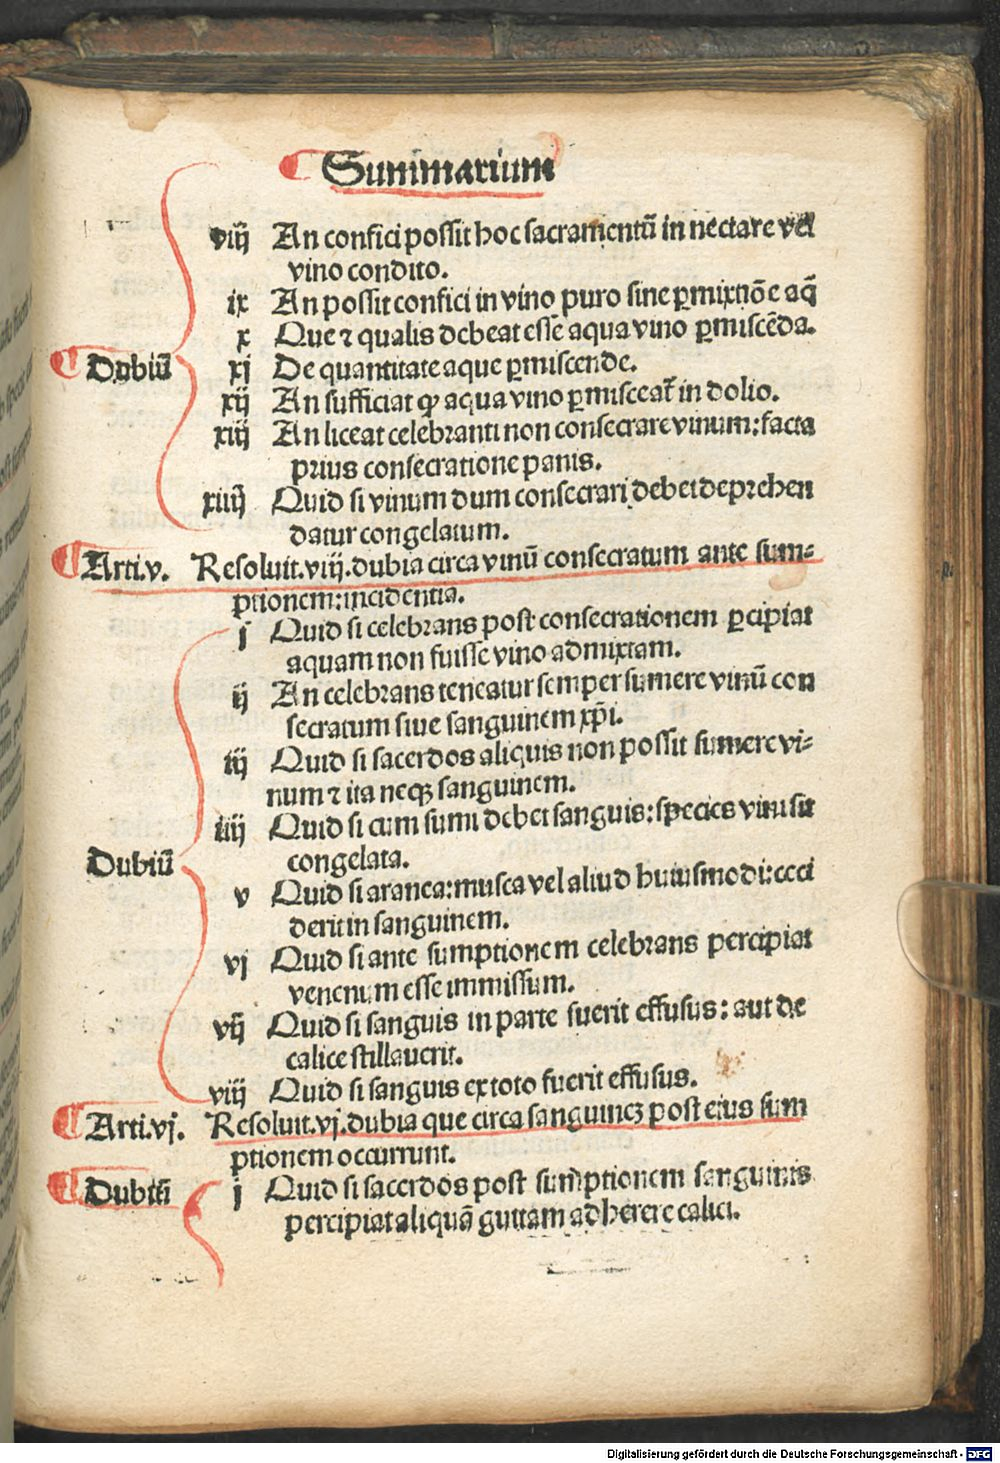 Summarium
viij An confici possit hoc sacramentū in nectare vel
vino condito.
ix An possit confici in vino puro sine ꝑmixtiōe aq̄
x Que ⁊ qualis debeat esse aqua vino ꝑmiscēda.
Dubiū xj De quantitate aque ꝑmiscende.
xij An sufficiat ꝙ aqua vino ꝑmisceat᷑ in dolio.
xiij An liceat celebranti non consecrare vinum: facta
prius consecratione panis.
xiiij Quid si vinum dum consecrari debet deprehen
datur congelatum.
Arti.v. Resoluit.viij.dubia circa vinū consecratum ante sum⸗
ptionem: incidentia.
j Quid si celebrans post consecrationem ꝑcipiat
aquam non fuisse vino admixtam.
ij An celebrans teneatur semper sumere vinū con
secratum siue sanguinem xp̄i.
iij Quid si sacerdos aliquis non possit sumere vi⸗
num ⁊ ita neqꝫ sanguinem.
iiij Quid si cum sumi debet sanguis: species vini sit
congelata.
Dubiū
v Quid si aranea: musca vel aliud huiusmodi: ceci
derit in sanguinem.
vj Quid si ante sumptionem celebrans percipiat
venenum esse immissum.
vij Quid si sanguis in parte fuerit effusus: aut de
calice stillauerit.
viij Quid si sanguis ex toto fuerit effusus.
Arti.vj. Resoluit.vj.dubia que circa sanguineꝫ post eius sum
ptionem occurrunt.
Dubiū j Quid si sacerdos post sumptionem sanguinis
percipiat aliquā guttam adherere calici.
Digitalisierung gefördert durch die Deutsche Forschungsgemeinschaft - DFG